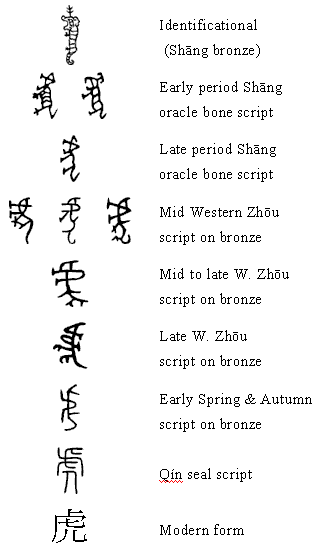 Identificational
(Shāng bronze)
Early period Shāng
oracle bone script
Late period Shāng
oracle bone script
Mid Western Zhōu
script on bronze
Mid to late W. Zhōu
script on bronze
Late W. Zhōu
script on bronze
Early Spring & Autumn
script on bronze
Qín seal script
虎 Modern form